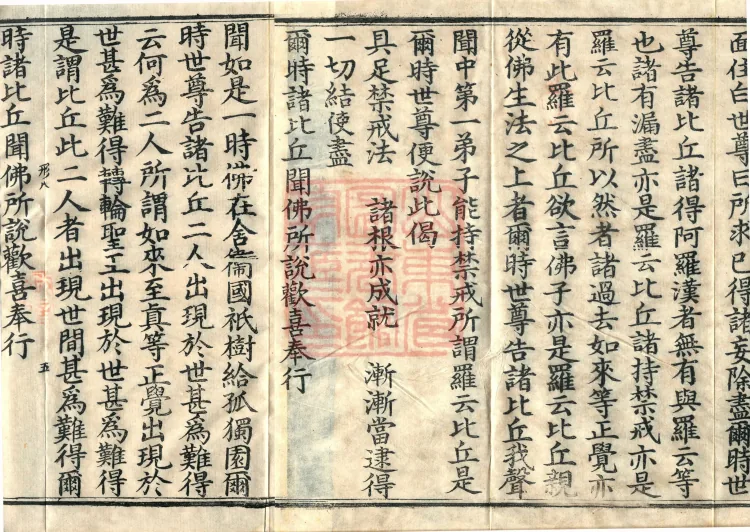 面住白世尊曰所求已得諸妄除盡爾時世
尊告諸比丘諸得阿羅漢者無有與羅云等
也諸有漏盡亦是羅云比丘諸持禁戒亦是
羅云比丘所以然者諸過去如來等正覺亦
有此羅云比丘欲言佛子亦是羅云比丘親
從佛生法之上者爾時世尊告諸比丘我聲
聞中第一弟子能持禁戒所謂羅云比丘是
爾時世尊便說此偈
具足禁戒法 諸根亦成就 漸漸當逮得
一切結使盡
爾時諸比丘聞佛所說歡喜奉行
聞如是一時佛在舍衞國祇樹給孤獨園爾
時世尊告諸比丘二人出現於世甚爲難得
云何爲二人所謂如來至真等正覺出現於
世甚爲難得轉輪聖王出現於世甚爲難得
是謂比丘此二人者出現世間甚爲難得爾
形八 五
時諸比丘聞佛所說歡喜奉行